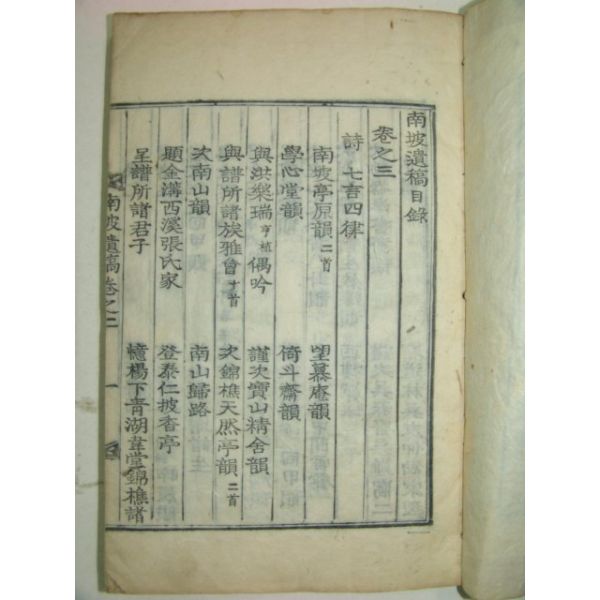 南坡遺稿目錄
卷之三
詩 七言四律
南坡亭原韻二首 望慕庵韻
學心堂韻 倚斗齋韻
與洪樂瑞亨植偶吟 謹次寶山精舍韻
與譜所諸族雅會十首 次錦樵天然亭韻二首
次南山韻 南山歸路
題金溝西溪張氏家 登泰仁披香亭
呈譜所諸君子 憶楊下靑湖韋堂錦樵諸
南坡遺稿卷之三 一